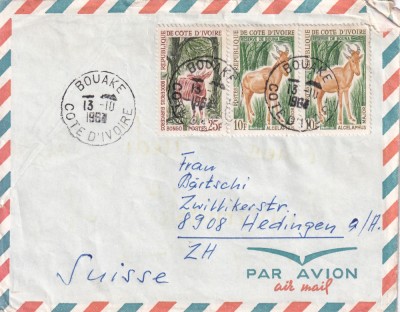 BOUAKE
13 -10
196
COTE D'IVOIRE
REPUBLIQUE DE COTE D'IVOIRE
BONGO
POSTES 25F
REPUBLIQUE DE COTE D'IVOIRE
10F
ALCELAPHUS
REPUBLIQUE DE COTE D'IVOIRE
ALCELAPHUS MAJOR
BOUAKE
13 -10
COTE D'IVOIRE
Frau
Bärtschi
Zwillikerstr.
8908 Hedingen a/A.
ZH
Suisse
PAR AVION
air mail